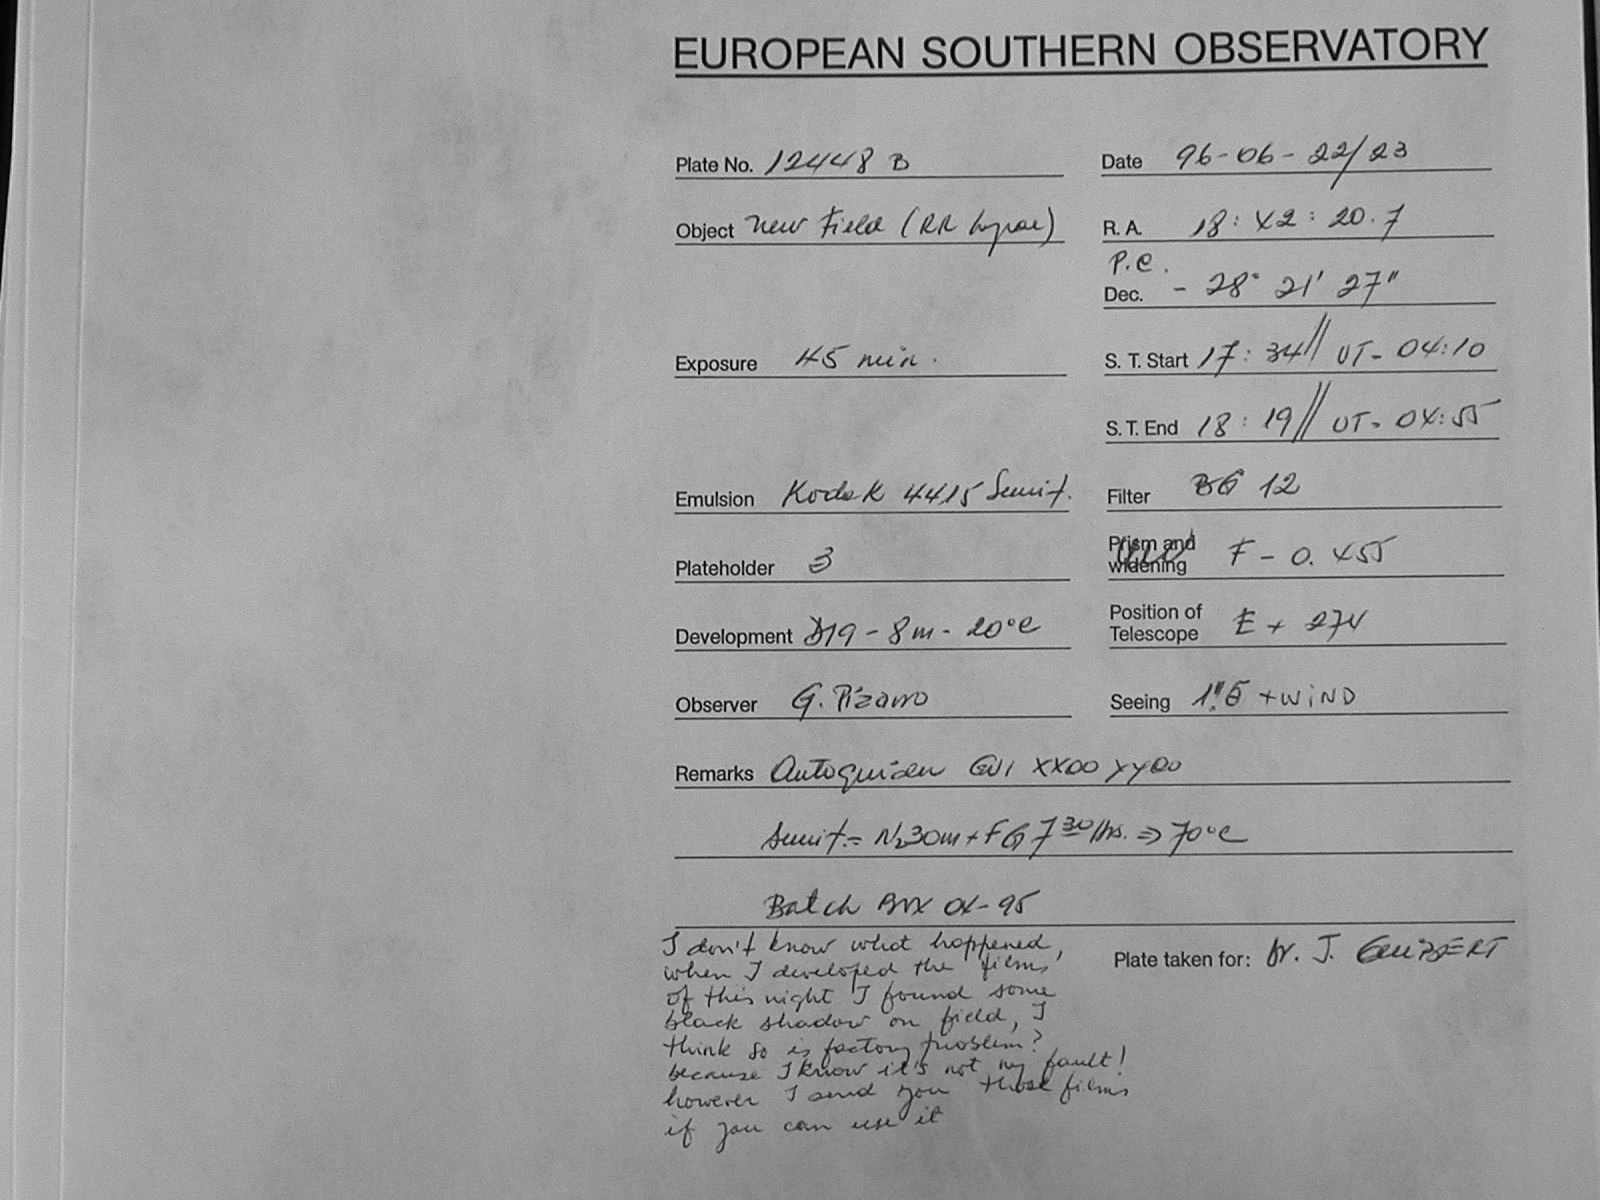 EUROPEAN SOUTHERN OBSERVATORY
Plate No. 12448 B
Date 96-06-22/23
Object New Field (RR Lyrae)
R. A. 18 : 42 : 20.7
P.e.
Dec. - 28° 21' 27"
Exposure 45 min.
S. T. Start 17 : 34 // UT- 04:10
S. T. End 18 : 19 // UT- 04:55
Emulsion Kodak 4415 Sensit.
Filter BG 12
Plateholder 3
Prism and widening F - 0.455
Development D19 - 8m - 20°C
Position of Telescope E + 274
Observer G. Pizarro
Seeing 1".5 + WIND
Remarks Autoguider GV1 XX00 YY00
Sensit.= N2 30m + FG 7 30/hs. ⇒ 70°C
Batch 04-95
I don't know what happened,
when I developed the films
of this night I found some
black shadow on field, I
think so is factory problem?
because I know it's not my fault!
however I send you those films
if you can use it
Plate taken for: Dr. J. GUIBERT